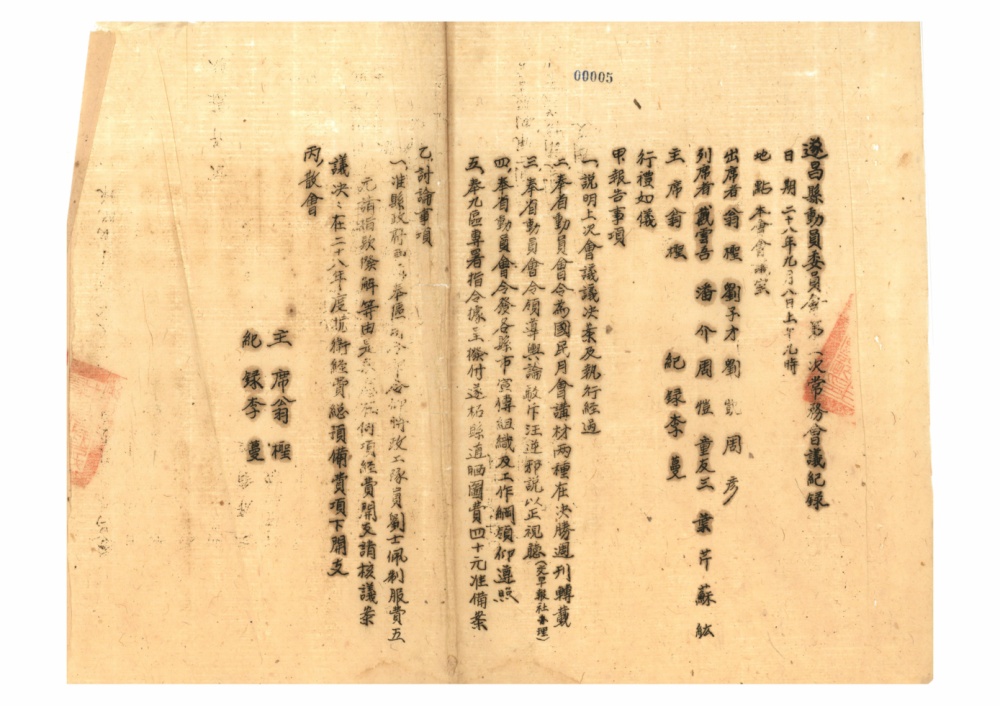 00005
遂昌縣動員委員會第 次常務會議紀錄
日期 二十八年九月八日上午九時
地點 本會會議室
出席者 翁檉 劉子才 劉凱 周彥
列席者 戴雲吾 潘介 周愷 童友三 葉芹 蘇紘
主席 翁檉 紀錄 李蔓
行禮如儀
甲、報告事項
一、說明上次會議議決案及執行經過
二、奉省動員會令為國民月會講材兩種在決勝週刊轉載
三、奉省動員會令領導輿論駁斥汪逆邪說以正視聽（交早報社辦理）
四、奉省動員會令發各縣市宣傳組織及工作綱領仰遵照
五、奉九區專署指令據呈撥付遂 縣道晒圖費四十元准備案
乙、討論事項
一、准縣政府 奉區 政工隊員劉士佩制服費五
元請指款 解等由是 何項經費開支請核議案
議決：在二十八年度抗衛經費總預備費項下開支
丙、散會
主席 翁檉
紀錄 李蔓